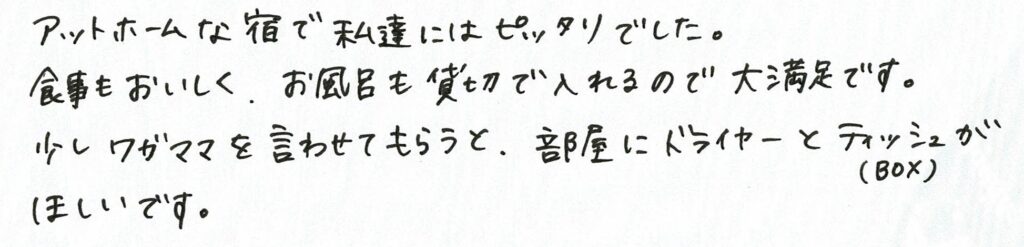 アットホームな宿で私達にはピッタリでした。
食事もおいしく、お風呂も貸切で入れるので大満足です。
少しワガママを言わせてもらうと、部屋にドライヤーとティッシュが
(BOX)
ほしいです。